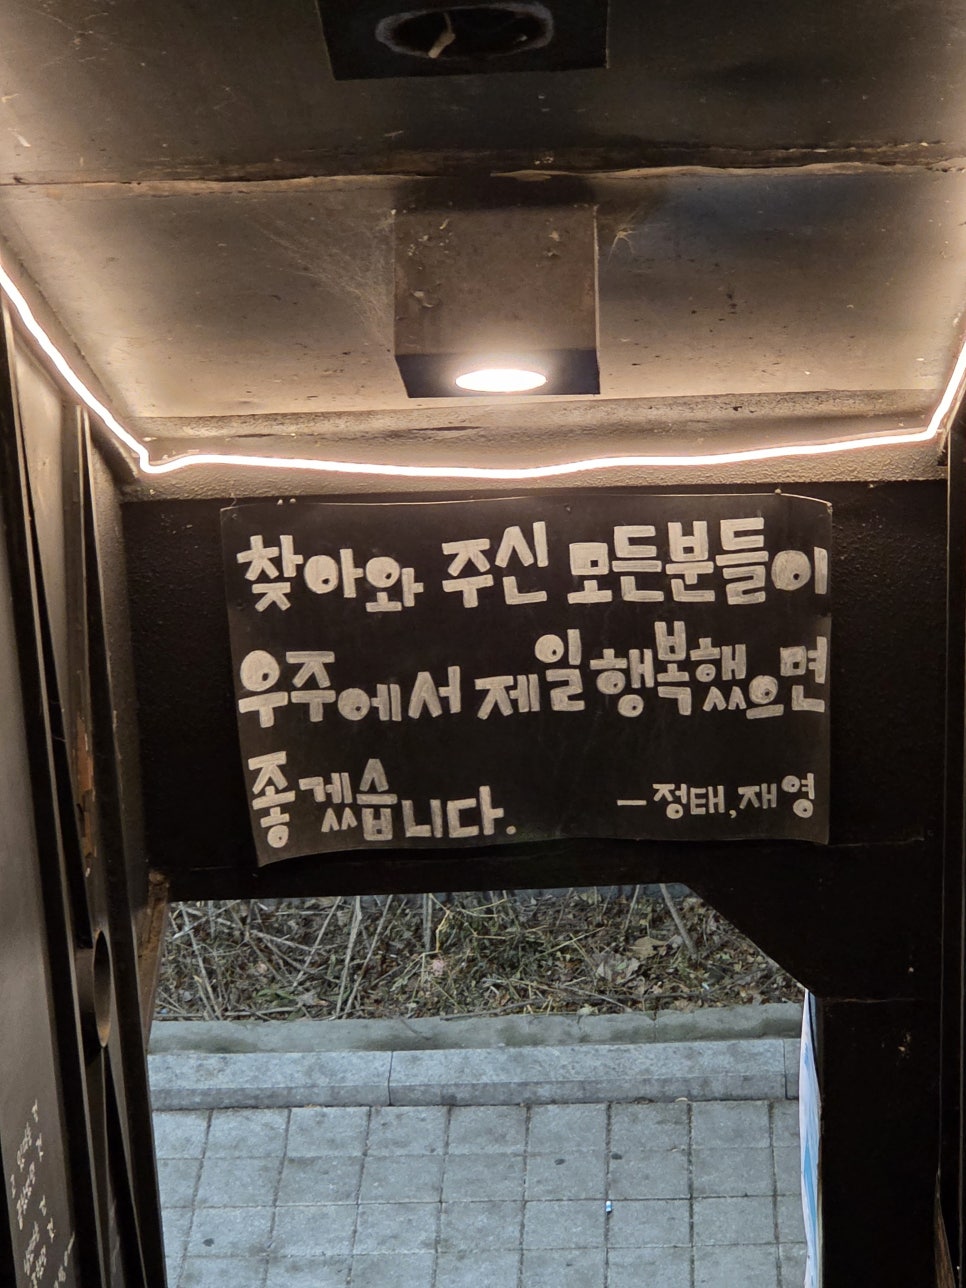 찾아와 주신 모든분들이
우주에서 제일 행복했으면
좋겠습니다.
– 정태, 재영